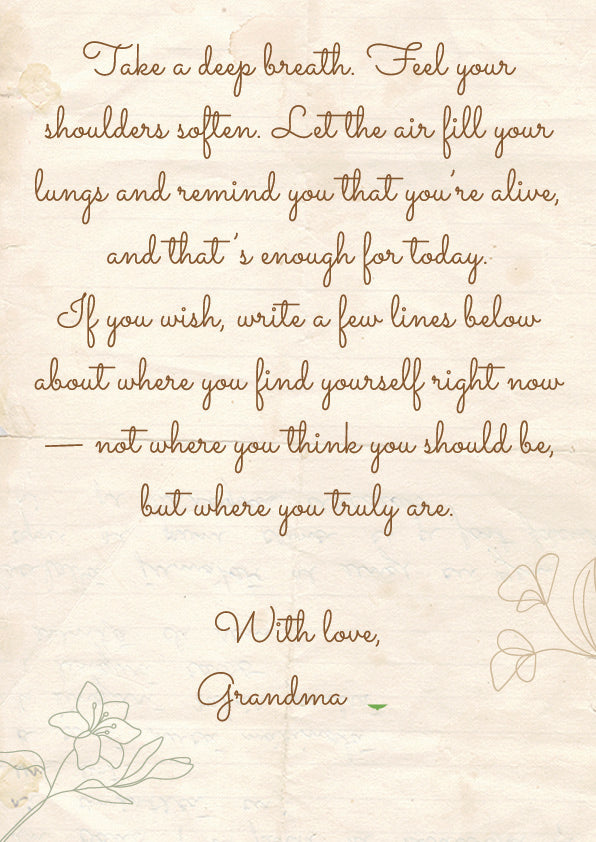 Take a deep breath. Feel your
shoulders soften. Let the air fill your
lungs and remind you that you're alive,
and that 's enough for today.
If you wish, write a few lines below
about where you find yourself right now
— not where you think you should be,
but where you truly are.
With love,
Grandma